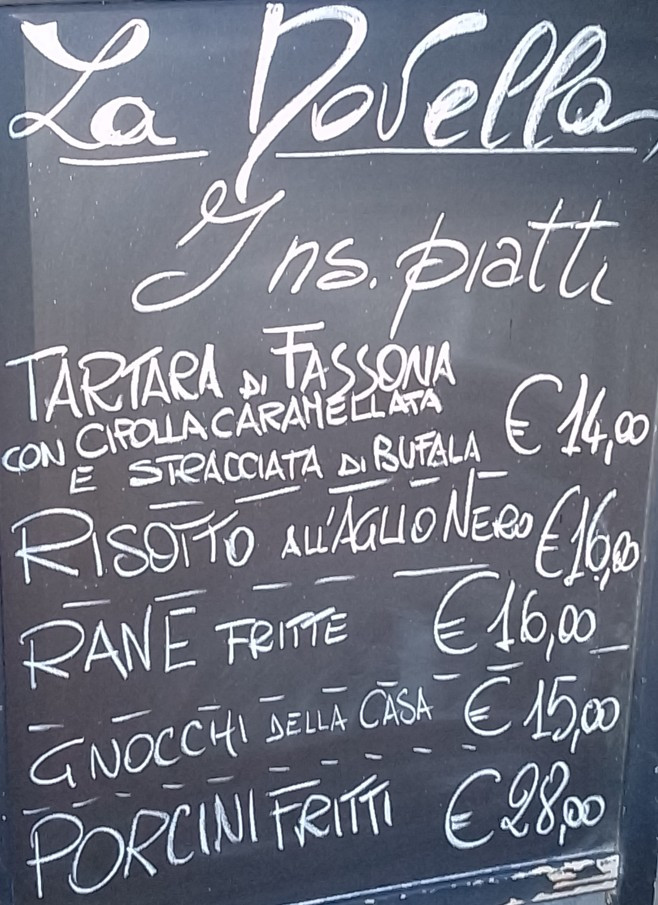 La Dovella
Ins. piatti
TARTARA DI FASSONA
CON CIPOLLA CARAMELLATA
E STRACCIATA DI BUFALA € 14,00
RISOTTO ALL'AGLIO NERO € 16,00
RANE FRITTE € 16,00
GNOCCHI DELLA CASA € 15,00
PORCINI FRITTI € 28,00